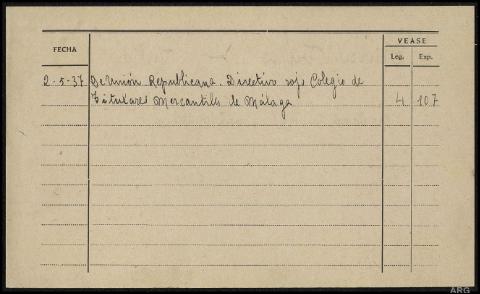 VEASE
FECHA
Leg. Exp.
2-5-37 De Unión Republicana. Directivo rojo Colegio de
Titulares Mercantiles de Málaga 4 107
ARG